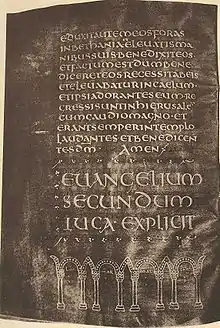 eduxitautemeosforas
inbethaniãeleuatisma
nibussuisbenedixiteos
etfactumestdumbene
diceretеosrecessitabeis
eteleuabaturincaelum
etipsiadoranteseumre
cressisuntinhierusale
cumcaudiomagnoet
erantsemperintemplo
laudantesetbenedicen
tesdm amen
euangelium
secundum
luca explicit